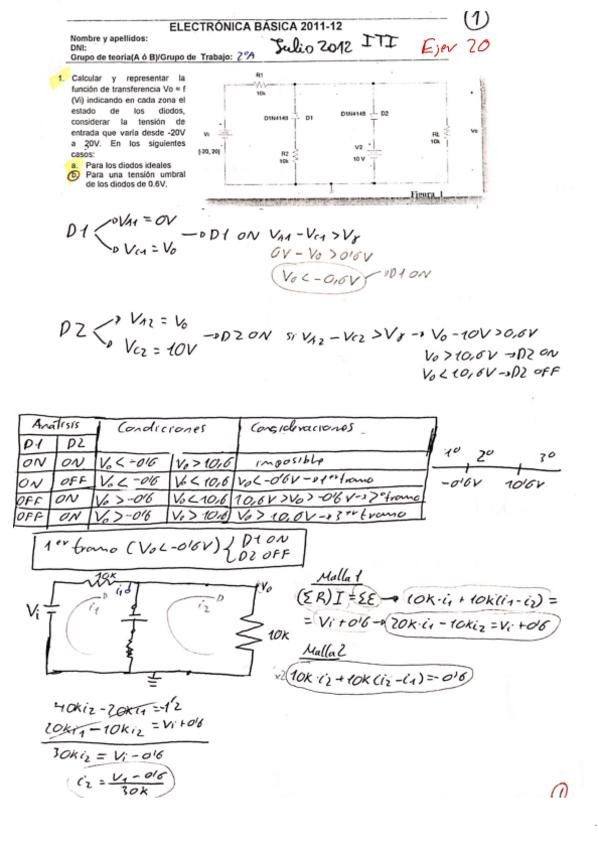 ELECTRÓNICA BÁSICA 2011-12
1
Nombre y apellidos:
DNI:
Grupo de teoría(A ó B)/Grupo de Trabajo: 2ºA
Julio 2012 ITI
Ejer 20
1. Calcular y representar la
función de transferencia Vo = f
(Vi) indicando en cada zona el
estado de los diodos,
considerar la tensión de
entrada que varía desde -20V
a 20V. En los siguientes
casos:
a. Para los diodos ideales
b Para una tensión umbral
de los diodos de 0.6V.
R1
10k
D1N4148 D1
D1N4148 D2
Vi
[-20, 20]
R2
10k
V2
10 V
RL
10k
Vo
Figura 1
D1 VA1 = 0V
VC1 = Vo
D1 ON VA1 - VC1 > Vγ
0V - Vo > 0'6V
Vo < -0,6V D1 ON
D2 VA2 = Vo
VC2 = 10V
D2 ON si VA2 - VC2 > Vγ → Vo - 10V > 0,6V
Vo > 10,6V → D2 ON
Vo < 10,6V → D2 OFF
Análisis Condiciones Consideraciones
D1 D2
ON ON Vo < -0'6 Vo > 10,6 imposible
ON OFF Vo < -0'6 Vo < 10,6 Vo < -0'6V → 1er tramo
OFF ON Vo > -0'6 Vo < 10,6 10,6V > Vo > -0'6V → 2º tramo
OFF ON Vo > -0'6 Vo > 10,6 Vo > 10,6V → 3er tramo
1º 2º 3º
-0'6V 10'6V
1er tramo (Vo < -0'6V) { D1 ON
D2 OFF
10k
id
Vo
Vi
i1
i2
10k
Malla 1
(ΣR)I = ΣE → 10k·i1 + 10k(i1-i2) =
= Vi + 0'6 → 20k·i1 - 10ki2 = Vi + 0'6
Malla 2
x2 10k·i2 + 10k(i2-i1) = -0'6
40ki2 - 20ki1 = -1'2
20ki1 - 10ki2 = Vi + 0'6
30ki2 = Vi - 0'6
i2 = V1 - 0'6
30k
1